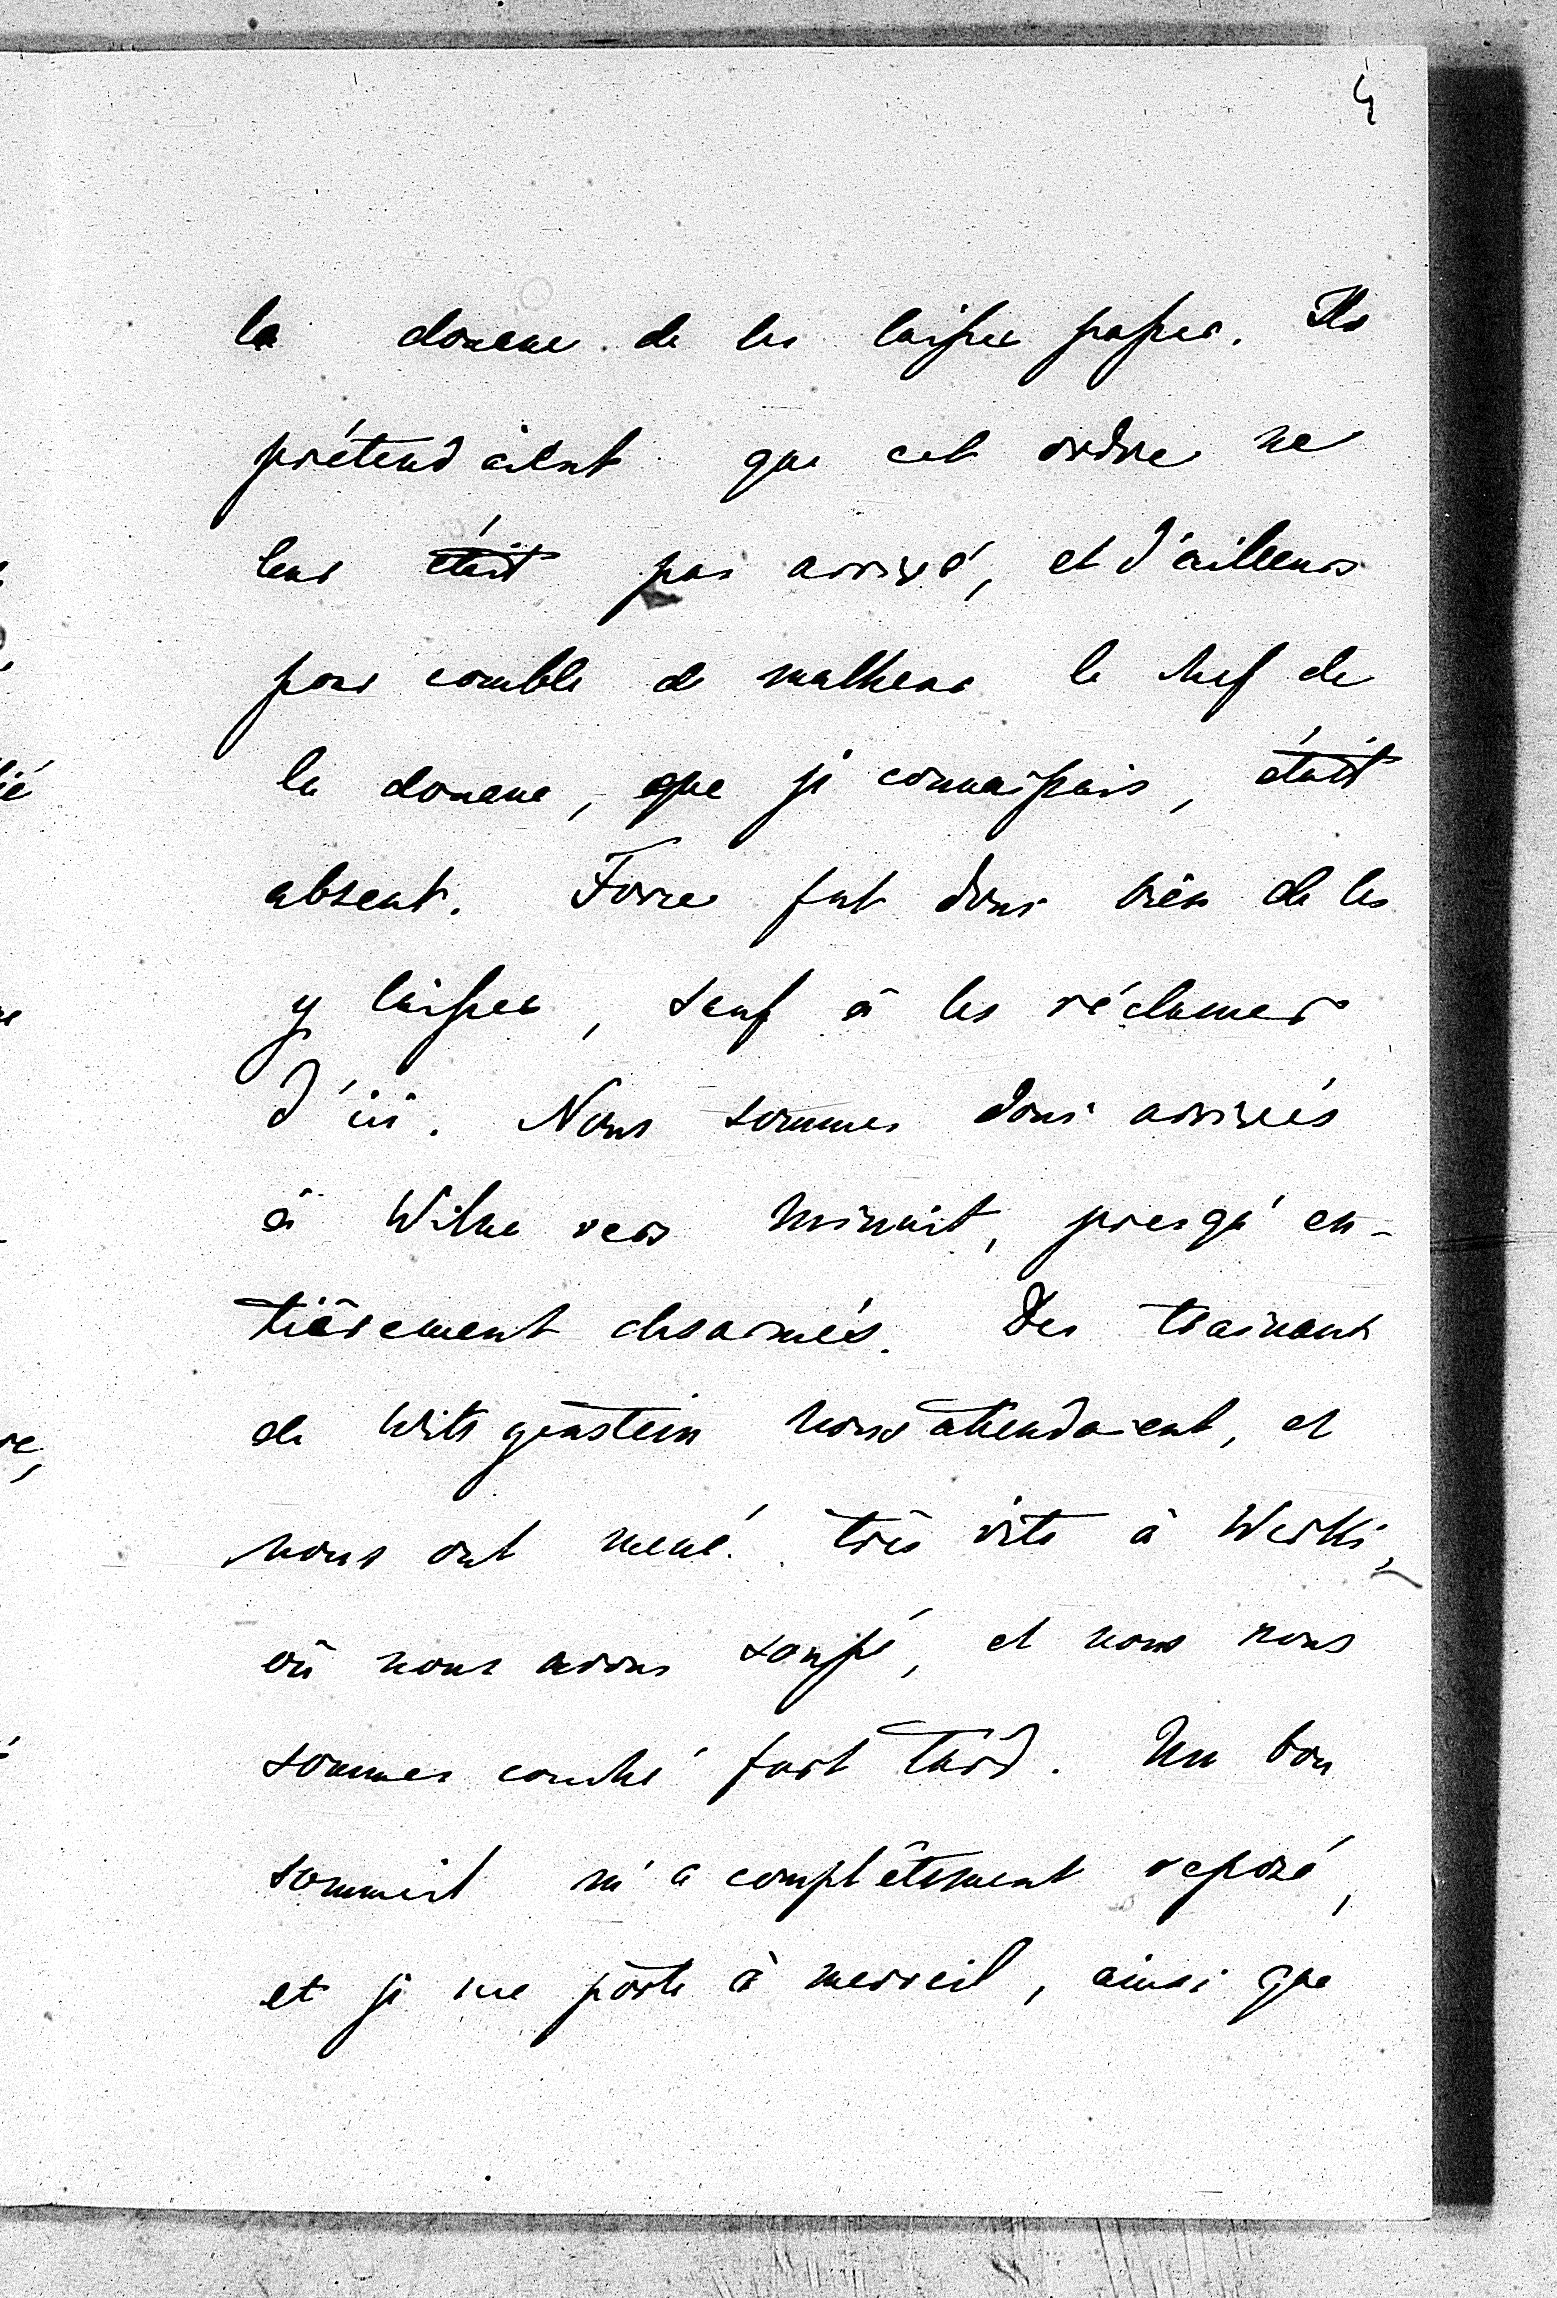 la douane de les laisser passer. Ils
prétendaient que cet ordre ne
leur était pas arrivé, et d'ailleurs
pour comble de malheur le chef de
la douane, que je connaissais, était
absent. Force fut donc bien de les
y laisser, sauf à les réclamer
d'ici. Nous sommes donc arrivés
à Wilna vers minuit, presqu'en-
tièrement desarmés. Des traineaux
de Witgenstein nous attendaient, et
nous ont mené très vite à Werki,
où nous avons soupé, et nous nous
sommes couché fort tard. Un bon
sommeil m'a complêtement reposé,
et je me porte à merveil, ainsi que